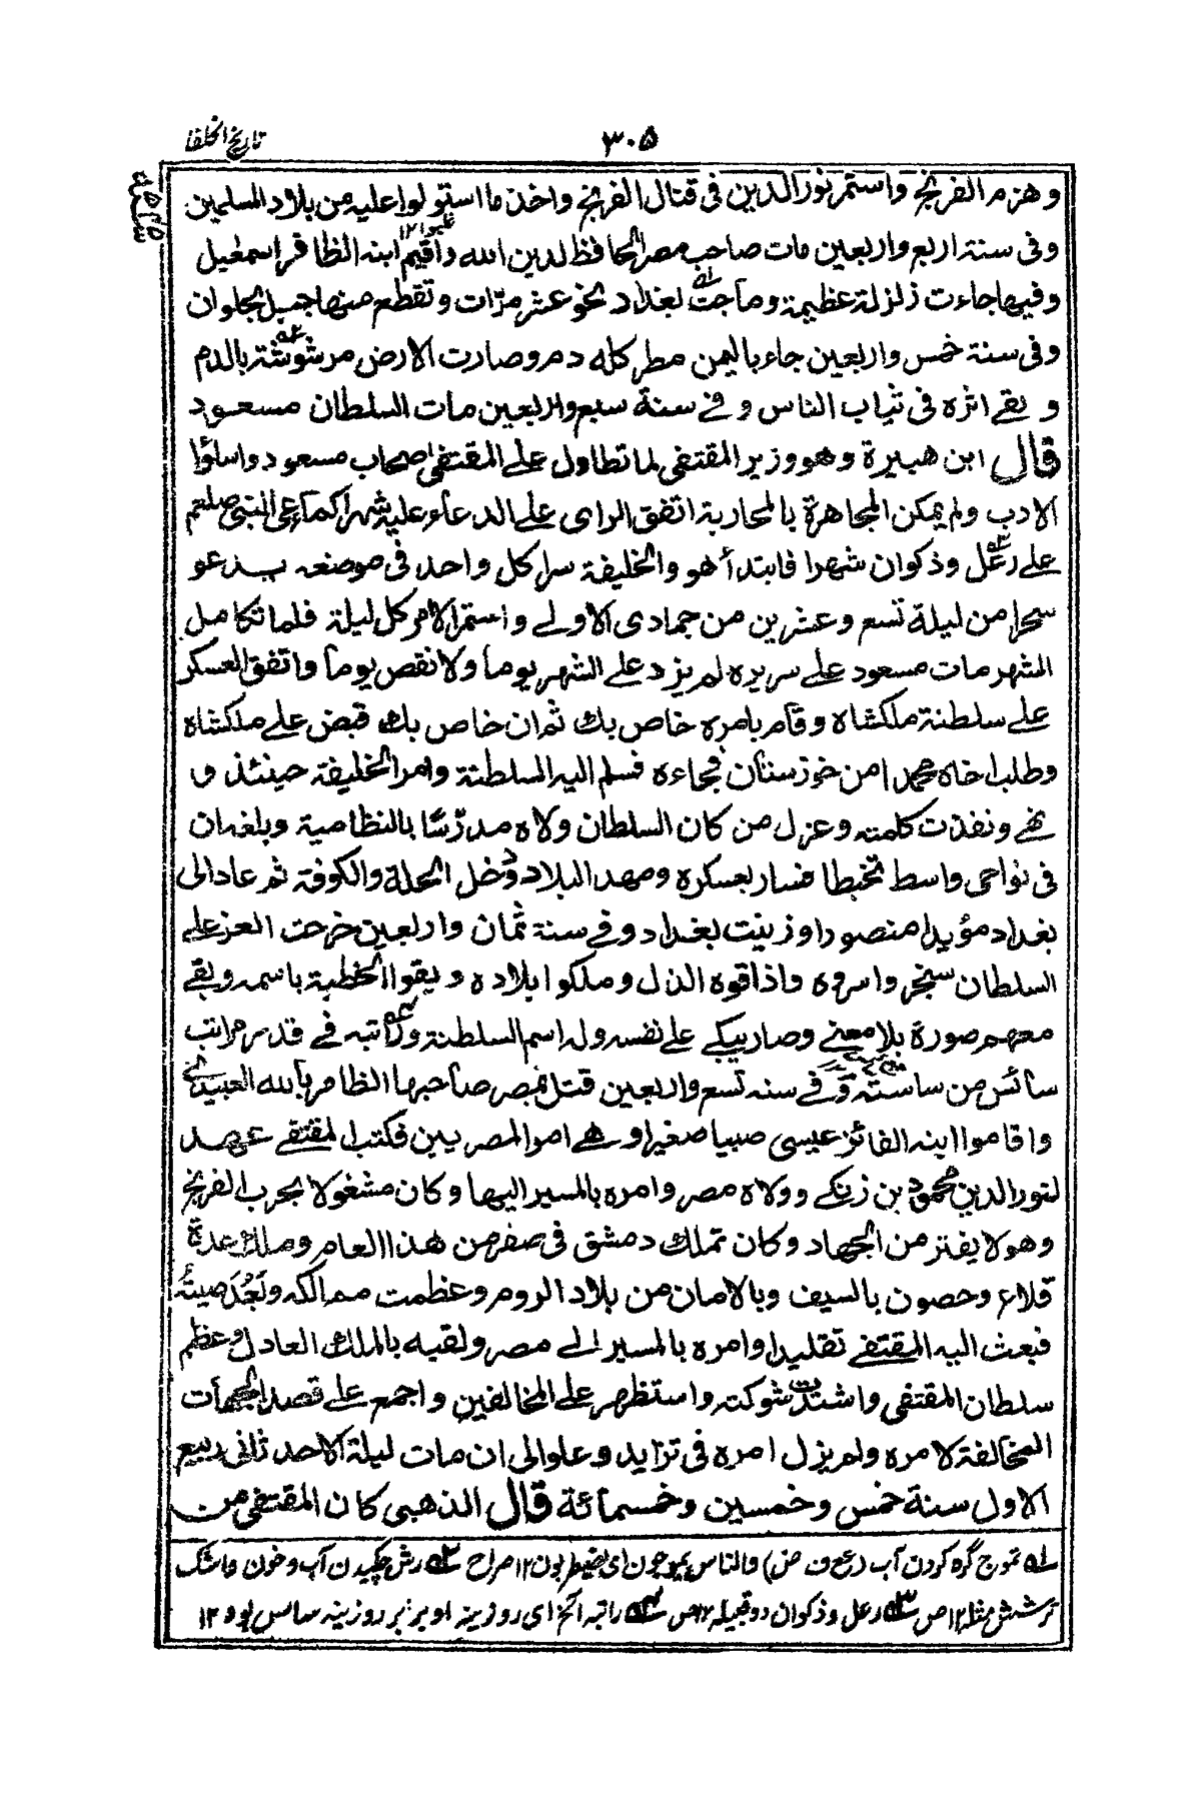 تاريخ الخلفا
٣٠۵
وهزم الفرنج واستمر نور الدين فى قتال الفرنج واخذ ما استولوا عليه من بلاد المسلمين
وفى سنة اربع واربعين مات صاحب مصر الحافظ لدين الله واقيم ابنه الظافر اسمعيل
وفيها جاءت زلزلة عظيمة وماجت بغداد نحو عشر مرّات وتقطع منها جبل بحلوان
وفى سنة خمس واربعين جاء باليمن مطر كله دم وصارت الارض مرشوشة بالدم
وبقے اثره فى ثياب الناس وفے سنة سبع واربعين مات السلطان مسعود
قال ابن هبيرة وهو وزير المقتفى لما تطاول علے المقتفى اصحاب مسعود واساؤا
الادب ولم يمكن المجاهرة بالمحاربة اتفق الراى علے الدعاء عليه شهرا كما دعى النبى صلعم
علے رعل وذكوان شهرا فابتدأ هو والخليفة سرا كل واحد فى موضعه يدعو
سحرا من ليلة تسع وعشرين من جمادى الاولے واستمر الامر كل ليلة فلما تكامل
الشهر مات مسعود علے سريره لم يزد علے الشهر يوما ولا نقص يوما واتفق العسكر
علے سلطنة ملكشاه وقام بامره خاص بك ثم ان خاص بك قبض علے ملكشاه
وطلب اخاه محمدا من خوزستان فجاءه فسلم اليه السلطنة وامر الخليفة حينئذ و
نهے ونفذت كلمته وعزل من كان السلطان ولاه مدرّسًا بالنظامية وبلغه ان
فى نواحى واسط تخبطا فسار بعسكره ومهد البلاد ودخل الحلة والكوفة ثم عاد الى
بغداد مؤيدا منصورا وزينت بغداد وفے سنة ثمان واربعين خرجت الغز علے
السلطان سنجر واسروه واذاقوه الذل وملكوا بلاده وبقوا الخطبة باسمه وبقے
معهم صورة بلا معنے وصار يبكے علے نفسه وله اسم السلطنة وراتبه فے قدر راتب
سائس من ساسته وفے سنه تسع واربعين قتل بمصر صاحبها الظافر بالله العبيدى
واقاموا ابنه الفائز عيسى صبيا صغيرا وهے امر المصريين فكتب المقتفے عهد
لنور الدين محمود بن زنكے وولاه مصر وامره بالمسير اليها وكان مشغولا بحرب الفرنج
وهو لا يفتر من الجهاد وكان تملك دمشق فى صفر من هذا العام وملك عدة
قلاع وحصون بالسيف وبالامان من بلاد الروم وعظمت ممالكه وبَعُدَ صيتُهُ
فبعث اليه المقتفے تقليدا وامره بالمسير الے مصر ولقبه بالملك العادل وعظم
سلطان المقتفى واشتدت شوكته واستظهر علے المخالفين واجمع علے قصد الجهات
المخالفة لامره ولم يزل امره فى تزايد وعلو الى ان مات ليلة الاحد ثانى ربيع
الاول سنة خمس وخمسين وخمسمائة قال الذهبى كان المقتفى من
له تموج گره كردن آب (ع ف ض) والناس يموجون اى يضطربون ١٢ صراح ٢ه رش چكيدن آب وخون واشك
ترشش مثله ١٢ ص ٣ه رعل وذكوان دو قبيله ١٢ ص ٤ه راتبه الخ اى روزينه او برابر روزينه سائس بود ١٢